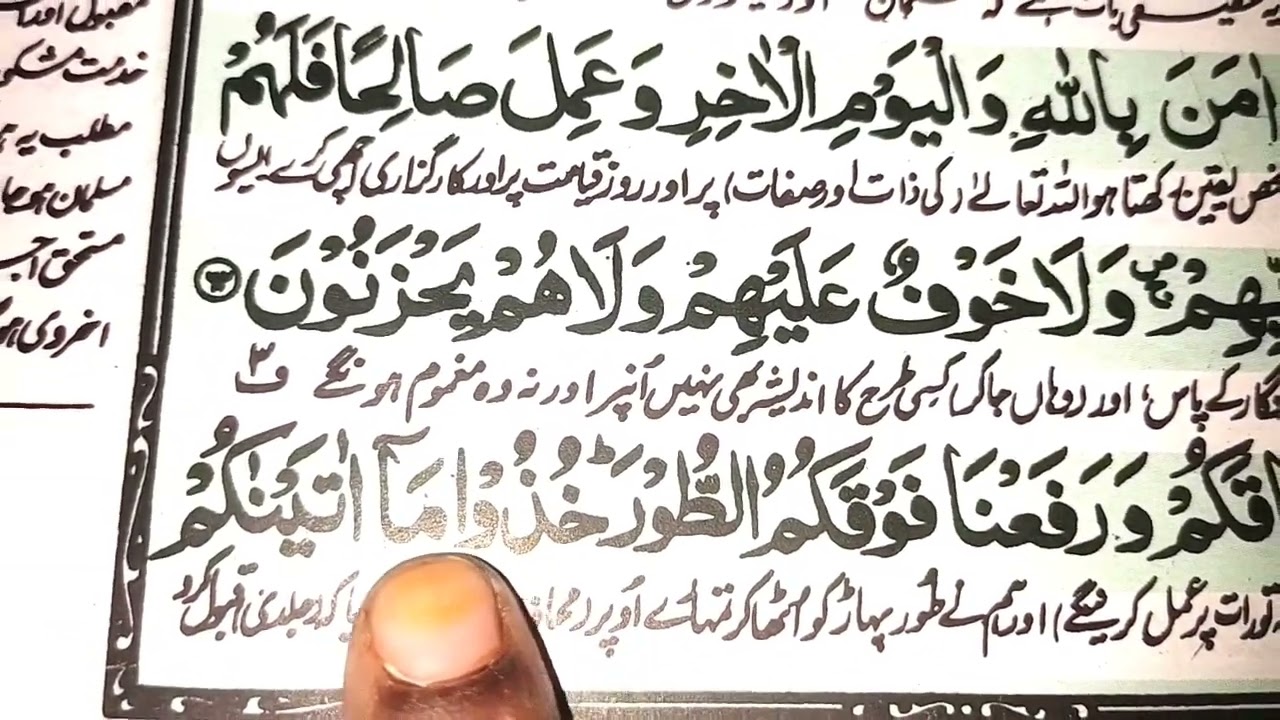 اٰمَنَ بِاللّٰهِ وَالْيَوْمِ الْاٰخِرِ وَعَمِلَ صَالِحًا فَلَهُمْ
یقین رکھتا ہو اللہ تعالےٰ (کی ذات اور صفات) پر اور روز قیامت پر اور کارگزاری اچھی کرے ایسوں
وَلَا خَوْفٌ عَلَيْهِمْ وَلَا هُمْ يَحْزَنُوْنَ
کے پاس؛ اور وہاں جاکر کسی طرح کا اندیشہ بھی نہیں اُنپر اور نہ وہ مغموم ہونگے ف۳
وَرَفَعْنَا فَوْقَكُمُ الطُّوْرَ ؕ خُذُوْا مَآ اٰتَيْنٰكُمْ
تورات پر عمل کرینگے) اور ہم نے طور پہاڑ کو اُٹھا کر تمہارے اُوپر کہ جلدی قبول کرو
مقبول اور
خدمت مشکو
مطلب یہ
مسلمان ہو جا
مستحق اجر
اخروی ہو